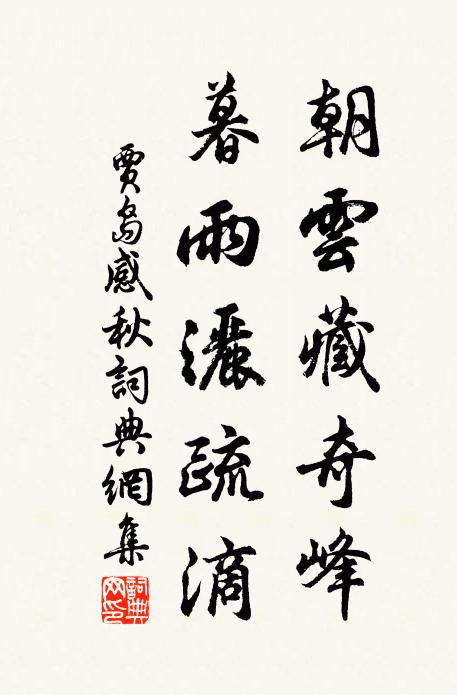 朝雲藏奇峰
暮雨灑疏滴
賈島感秋詞典網集
詞典網印